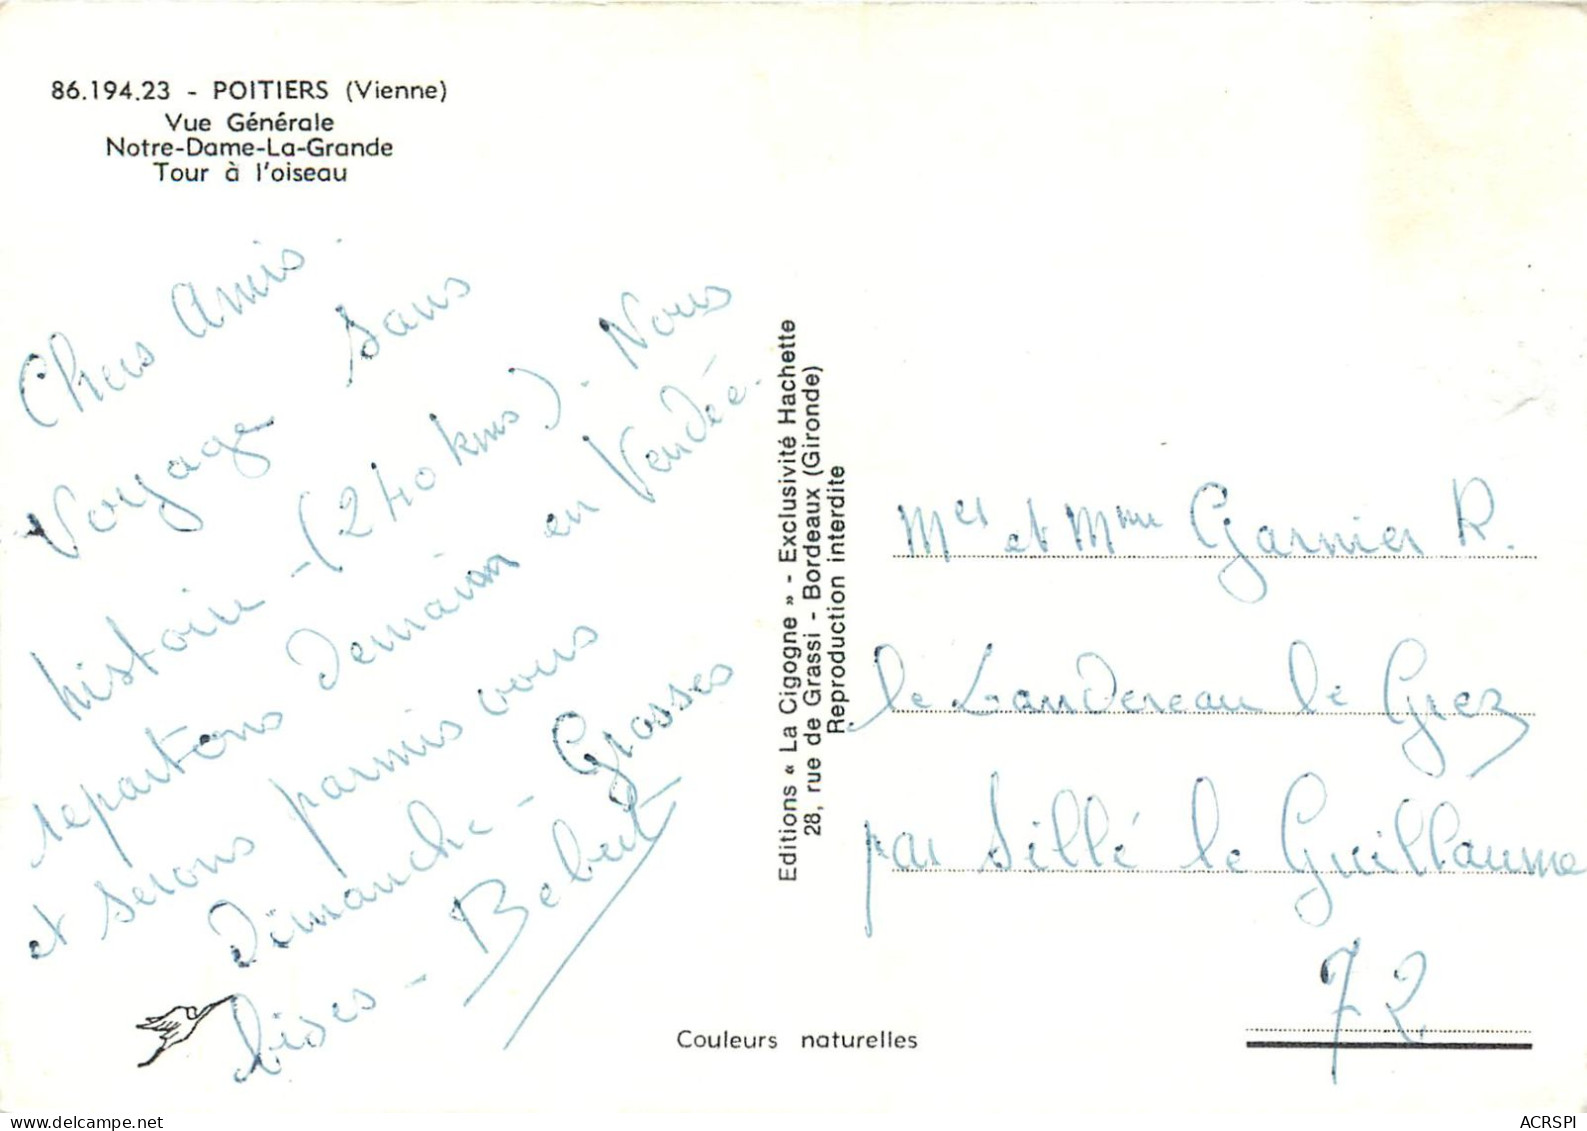 86.194.23 - POITIERS (Vienne)
Vue Générale
Notre-Dame-La-Grande
Tour à l'oiseau
Chers Amis.
Voyage sans
histoire - (240 kms). Nous
repartons Demain en Vendée.
et serons parmis vous
Dimanche - Grosses
bises - Bebert
Editions « La Cigogne » - Exclusivité Hachette
28, rue de Grassi - Bordeaux (Gironde)
Reproduction interdite
Mer et Mme Garnier R.
le Landereau le Grez
par Sillé le Guillaume
72
Couleurs naturelles
ACRSPI